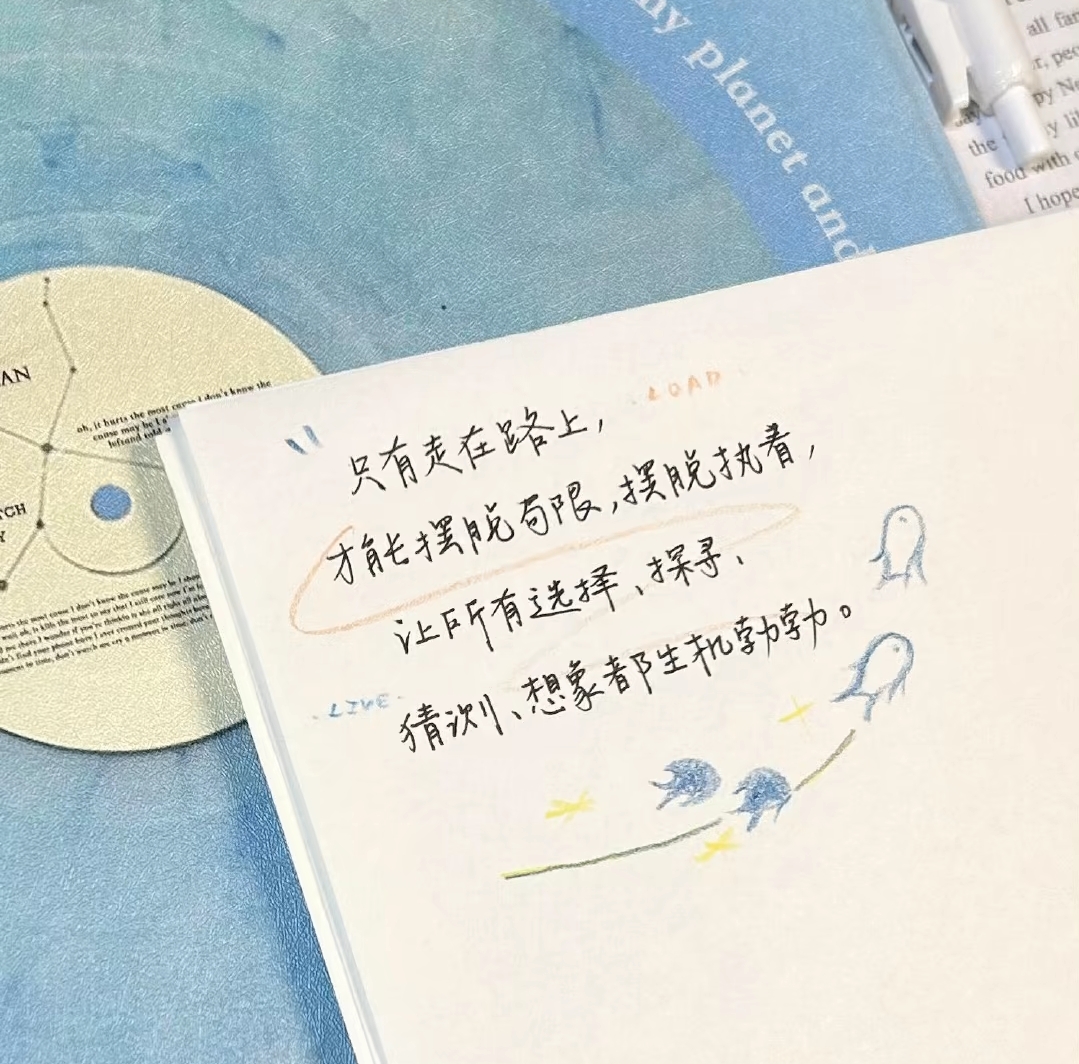 my planet and
all fan
py Ne
the
y li
food with
I hope
AN
oh, it hurts the most cause I don't know the
cause may be I
TCH
Y
LOAD
只有走在路上,
才能摆脱局限,摆脱执着,
让所有选择、探寻、
猜测、想象都生机勃勃。
LIVE